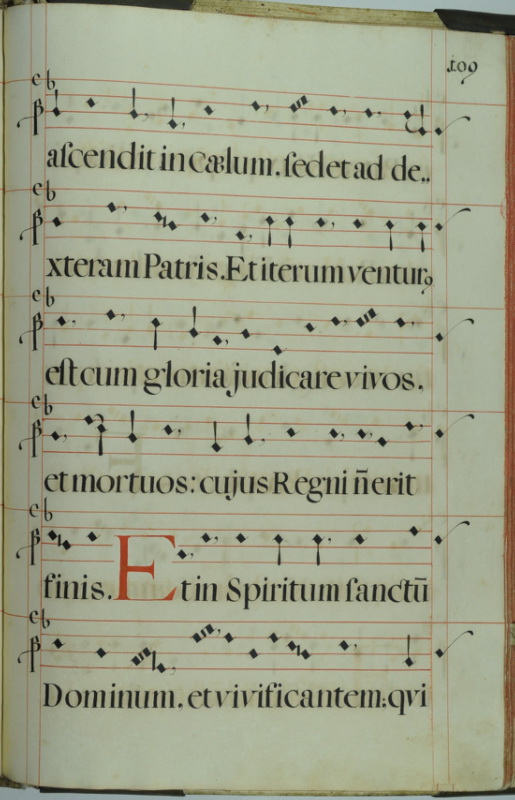 109
aſcendit in Cælum. ſedet ad de..
xteram Patris. Et iterum ventur9
eſt cum gloria judicare vivos.
et mortuos: cujus Regni ñ erit
finis. Et in Spiritum ſanctū
Dominum. et vivificantem: qvi